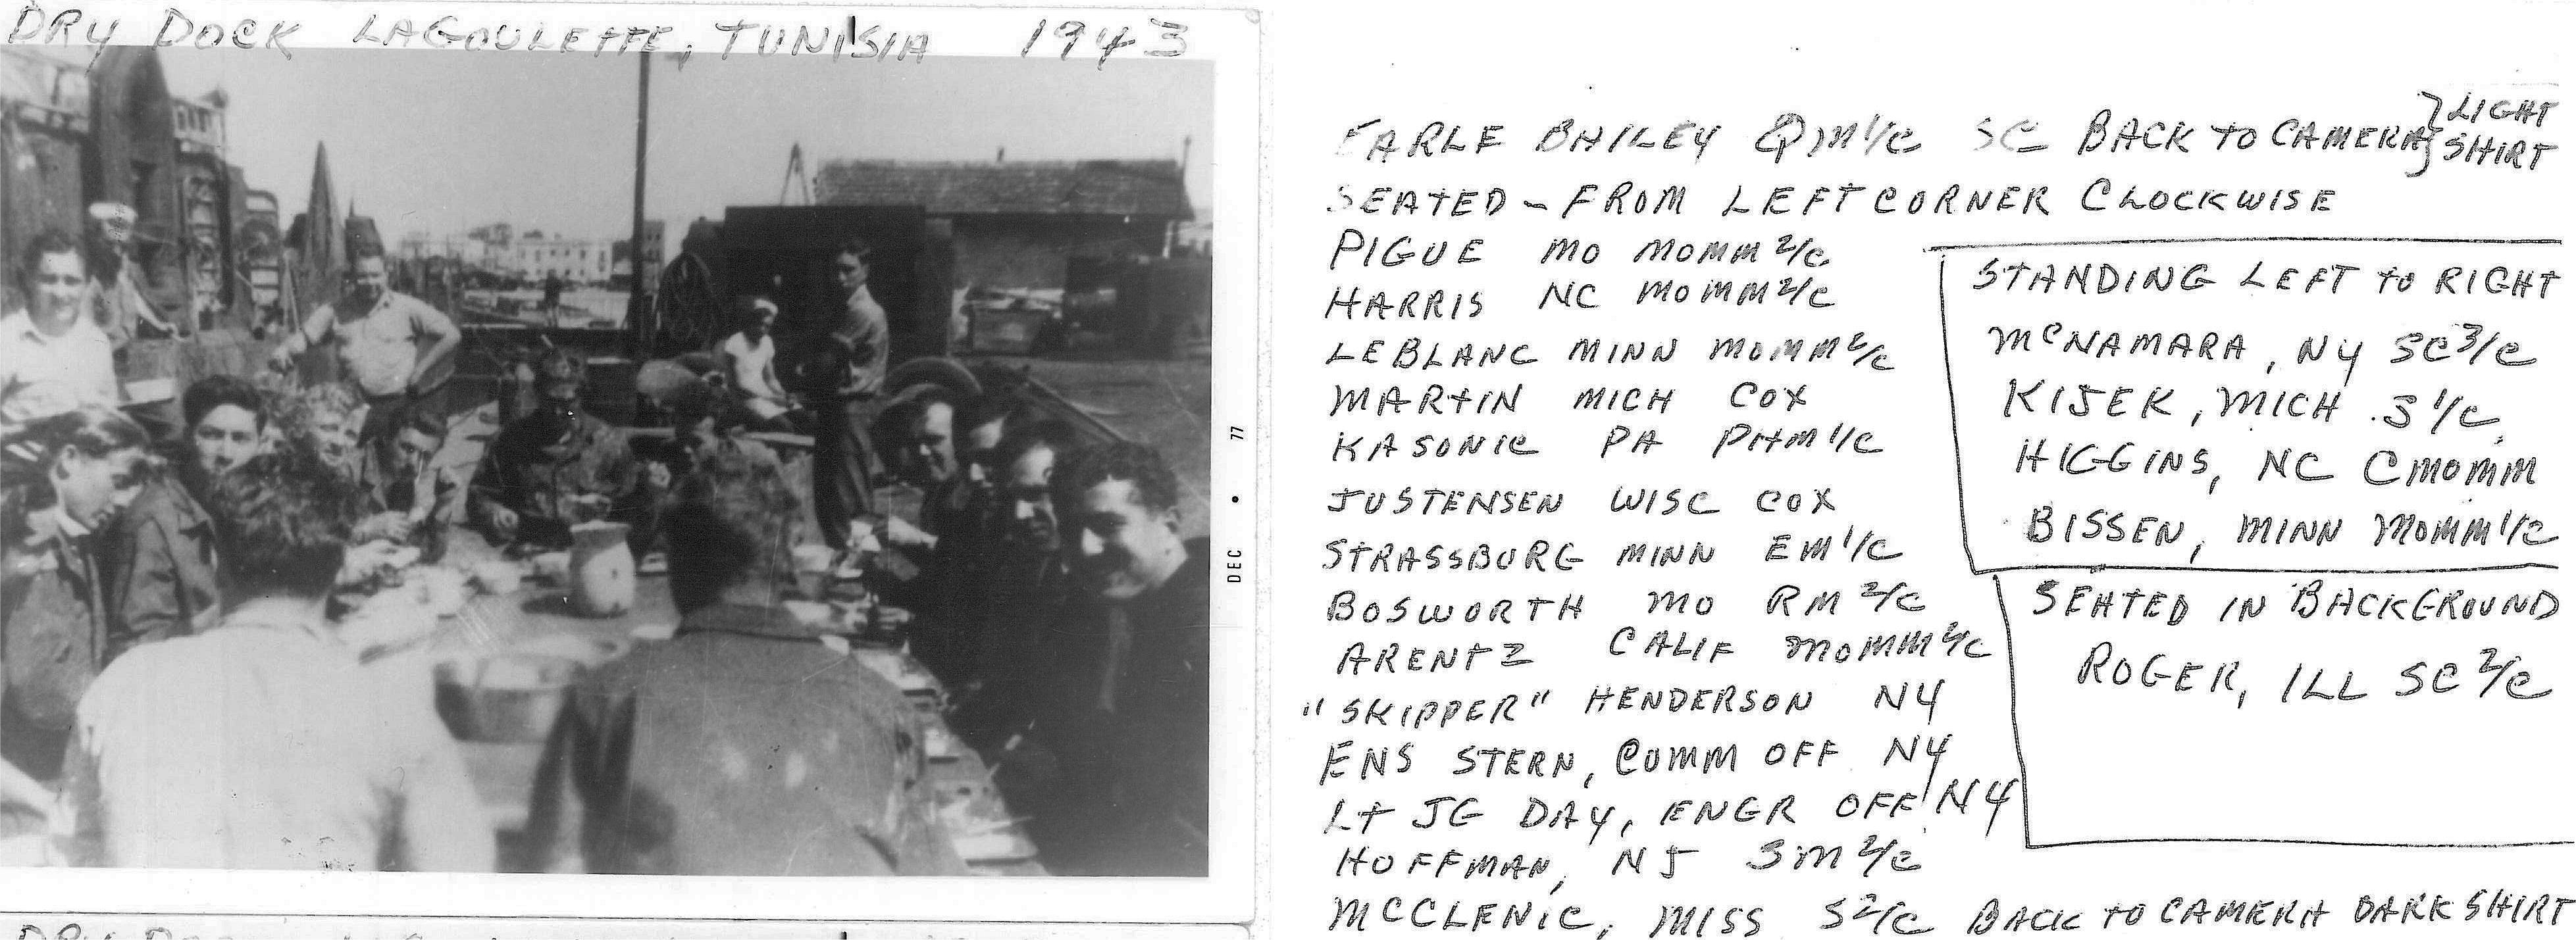 DRY DOCK LAGOULETTE, TUNISIA 1943
DEC • 77
EARLE BAILEY QM1/C SC BACK TO CAMERA } LIGHT SHIRT
SEATED - FROM LEFT CORNER CLOCKWISE
PIGUE MO MOMM 2/C
HARRIS NC MOMM 2/C
LEBLANC MINN MOMM 2/C
MARTIN MICH COX
KASONIC PA PHM 1/C
JUSTENSEN WISC COX
STRASSBURG MINN EM 1/C
BOSWORTH MO RM 2/C
ARENTZ CALIF MOMM 2/C
"SKIPPER" HENDERSON NY
ENS STERN, COMM OFF NY
LT JG DAY, ENGR OFF NY
HOFFMAN, NJ SM 2/C
MCCLENIC, MISS S2/C BACK TO CAMERA DARK SHIRT
STANDING LEFT TO RIGHT
MCNAMARA, NY SC 3/C
KIJEK, MICH S 1/C
HIGGINS, NC CMOMM
BISSEN, MINN MOMM 1/C
SEATED IN BACKGROUND
ROGER, ILL SC 2/C